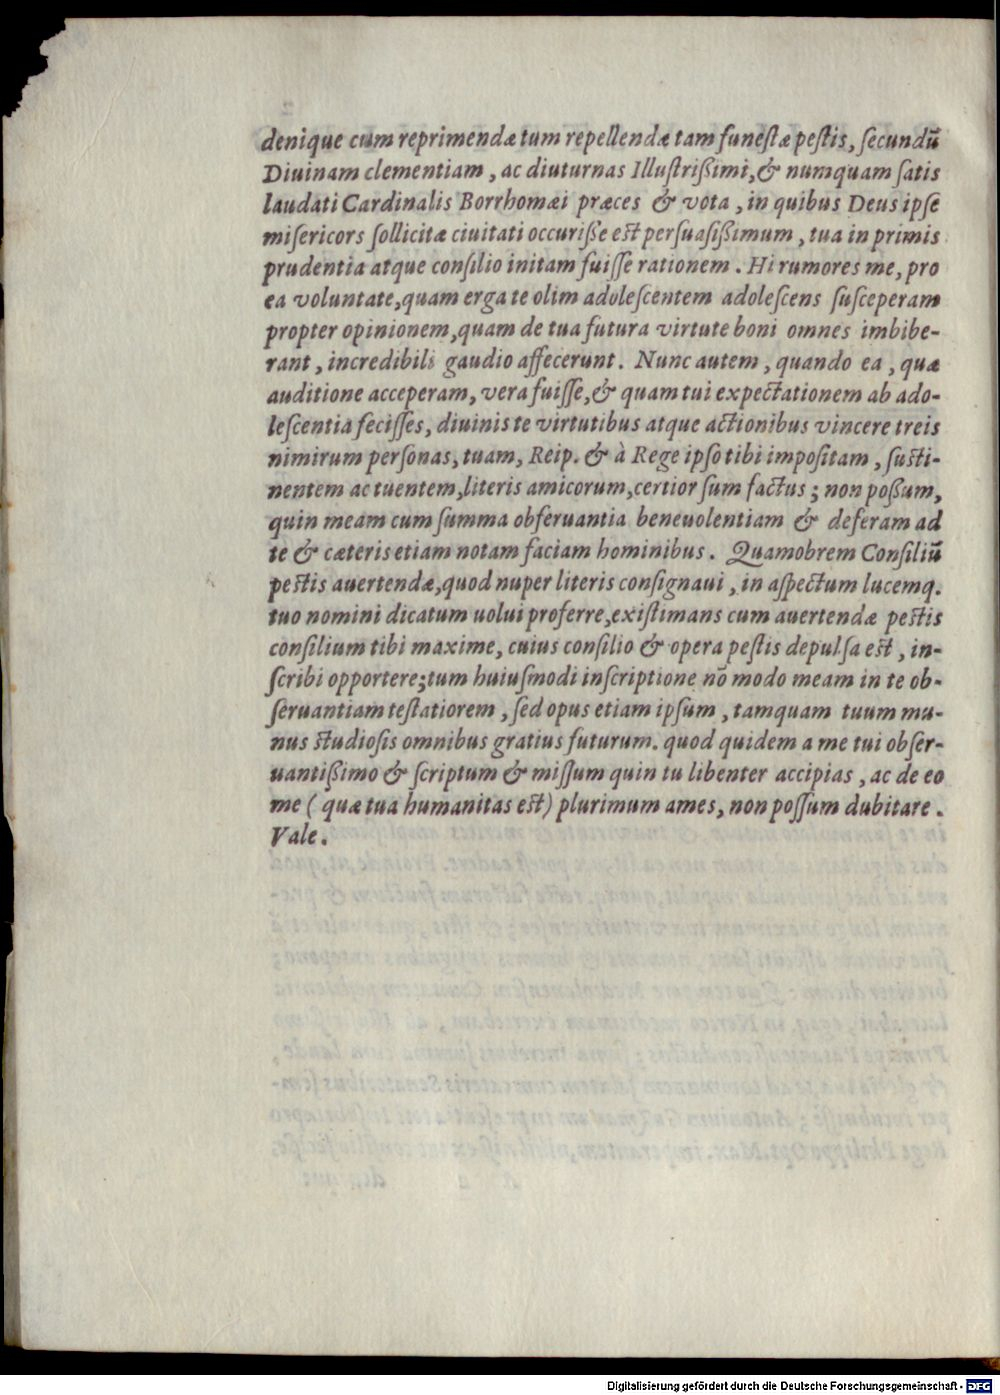 denique cum reprimendæ tum repellendæ tam funeſtæ peſtis, ſecundũ
Diuinam clementiam, ac diuturnas Illuſtrißimi, & numquam ſatis
laudati Cardinalis Borrhomæi præces & vota, in quibus Deus ipſe
miſericors ſollicitæ ciuitati occuriße eſt perſuaſißimum, tua in primis
prudentia atque conſilio initam fuiſſe rationem. Hi rumores me, pro
ea voluntate, quam erga te olim adoleſcentem adoleſcens ſuſceperam
propter opinionem, quam de tua futura virtute boni omnes imbibe-
rant, incredibili gaudio affecerunt. Nunc autem, quando ea, quæ
auditione acceperam, vera fuiſſe, & quam tui expectationem ab ado-
leſcentia feciſſes, diuinis te virtutibus atque actionibus vincere treis
nimirum perſonas, tuam, Reip. & à Rege ipſo tibi impoſitam, ſuſti-
nentem ac tuentem, literis amicorum, certior ſum factus; non poßum,
quin meam cum ſumma obſeruantia beneuolentiam & deferam ad
te & cæteris etiam notam faciam hominibus. Quamobrem Conſiliũ
peſtis auertendæ, quod nuper literis conſignaui, in aſpectum lucemq.
tuo nomini dicatum uolui proferre, exiſtimans cum auertendæ peſtis
conſilium tibi maxime, cuius conſilio & opera peſtis depulſa eſt, in-
ſcribi opportere; tum huiuſmodi inſcriptione nõ modo meam in te ob-
ſeruantiam teſtatiorem, ſed opus etiam ipſum, tamquam tuum mu-
nus ſtudioſis omnibus gratius futurum. quod quidem a me tui obſer-
uantißimo & ſcriptum & miſſum quin tu libenter accipias, ac de eo
me ( quæ tua humanitas eſt) plurimum ames, non poſſum dubitare.
Vale.
Digitalisierung gefördert durch die Deutsche Forschungsgemeinschaft - DFG